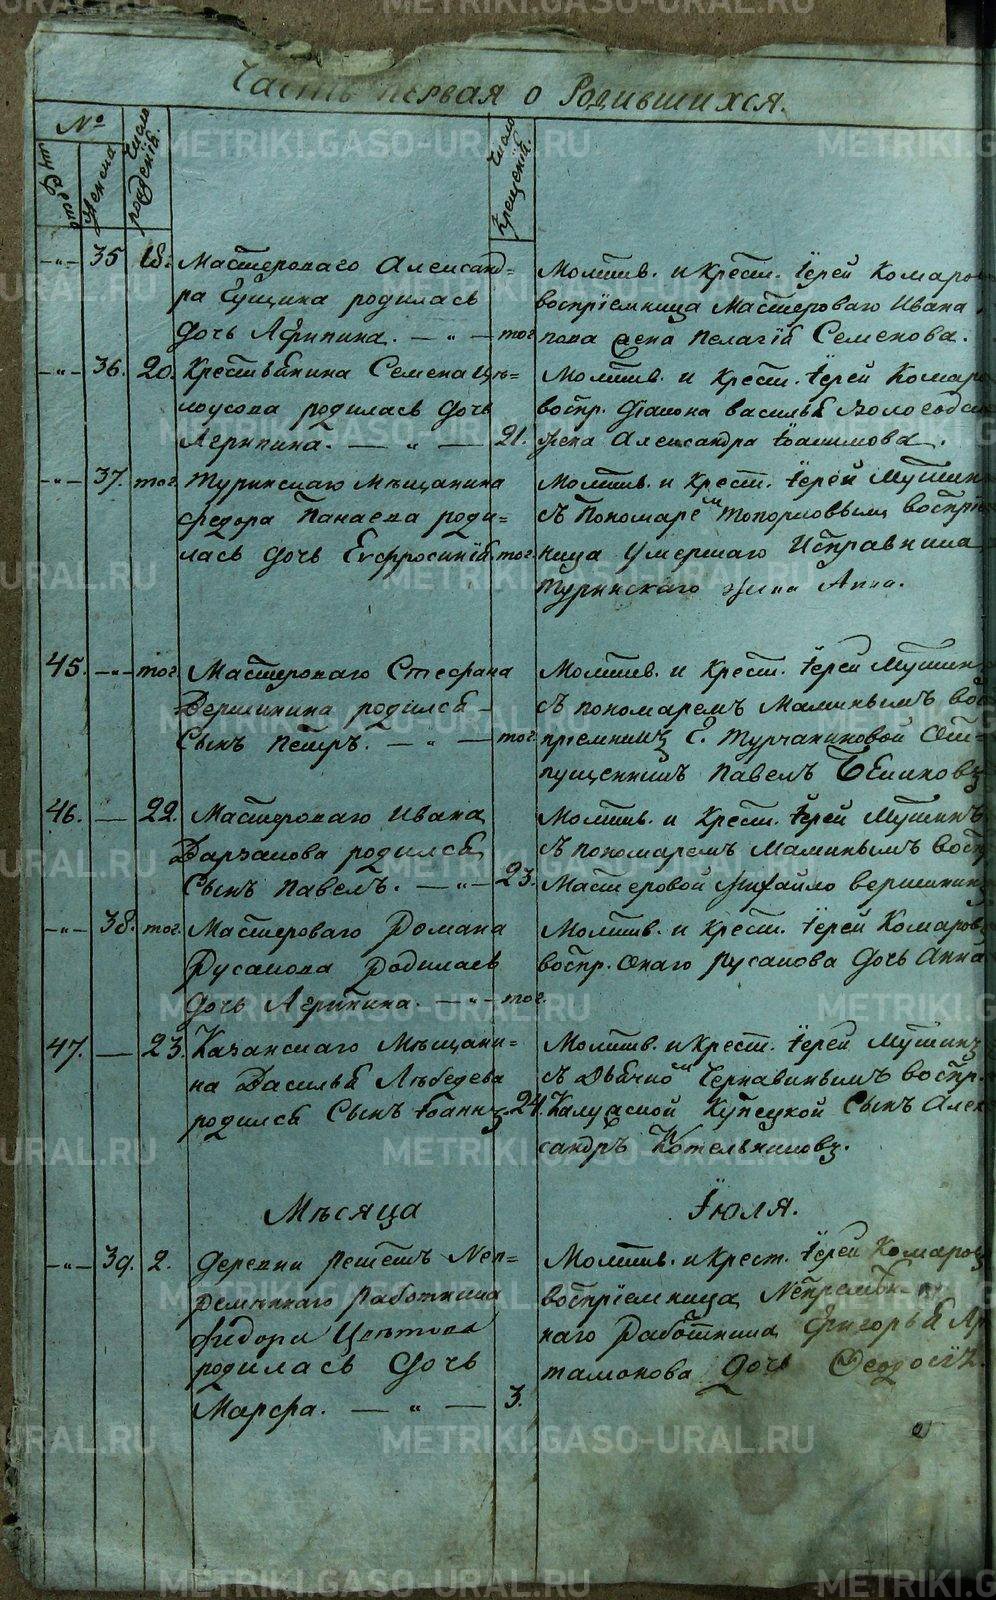 Часть первая о Родившихся.
№
мужеска
женска
Число рожденій.
Число Крещеній.
-„- 35 18. Мастероваго Александ=
ра Гущина родилась
дочь Агрипина. — „ — тог.
Молитв. и Крест. Іерей Комаров
воспріемница Мастероваго Ивана
попа жена Пелагія Семенова.
-„- 36. 20. Крестьянина Семена
родилась дочь
Агрипина. — „ — 21.
Молитв. и Крест. Іерей Комаро
воспр. діакона Василья
жена Александра Іоакимова.
-„- 37. тог. Туринскаго Мѣщанина
Федора Панаева роди=
лась дочь Евфросинія тог.
Молитв. и Крест. Іерей Мутин
съ Пономарем Топорковым воспріе
ница умершаго Исправника
Туринскаго жена Анна.
45. -„- тог. Мастероваго Стефана
Вершинина родился
сынъ Петръ. — „ — тог.
Молитв. и Крест. Іерей Мутин
съ пономаремъ Маминымъ вос
пріемникъ Г. Турчаниновой От=
пущенникъ Павелъ
46. — 22. Мастероваго Ивана
Варзакова родился
сынъ Павелъ. — „ — 23.
Молитв. и Крест. Іерей Мутинъ
съ пономаремъ Маминымъ восп
Мастеровой Михайло Вершининъ
-„- 38. тог. Мастероваго Романа
Русакова Родилась
дочь Агрипина. — „ — тог.
Молитв. и Крест. Іерей Комаровъ
воспр. Онаго Русакова дочь Анна
47. — 23. Казанскаго Мѣщани=
на Василья Лебедева
родился Сынъ Іоаннъ 24.
Молитв. и Крест. Іерей Мутинъ
съ Дьячком Чернавинымъ воспр.
Калужской Купецкой Сынъ Алек
сандръ Котельниковъ.
Мѣсяца Іюля.
-„- 39. 2. Деревни Решетъ Неп=
ремѣннаго Работника
Фидора
родилась Дочь
Марфа. — „ — 3.
Молитв. и Крест. Іерей Комаровъ
воспріемница Непремѣн=
наго Работника Григорья Ар
тамонова дочь Феодосія.
METRIKI.GASO-URAL.RU